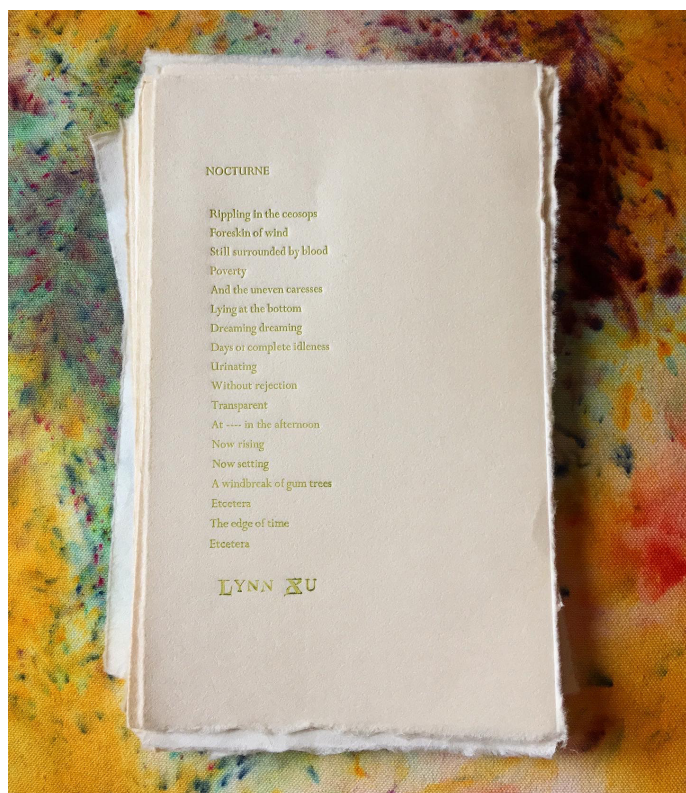 NOCTURNE
Rippling in the ceosops
Foreskin of wind
Still surrounded by blood
Poverty
And the uneven caresses
Lying at the bottom
Dreaming dreaming
Days of complete idleness
Urinating
Without rejection
Transparent
At ---- in the afternoon
Now rising
Now setting
A windbreak of gum trees
Etcetera
The edge of time
Etcetera
LYNN XU